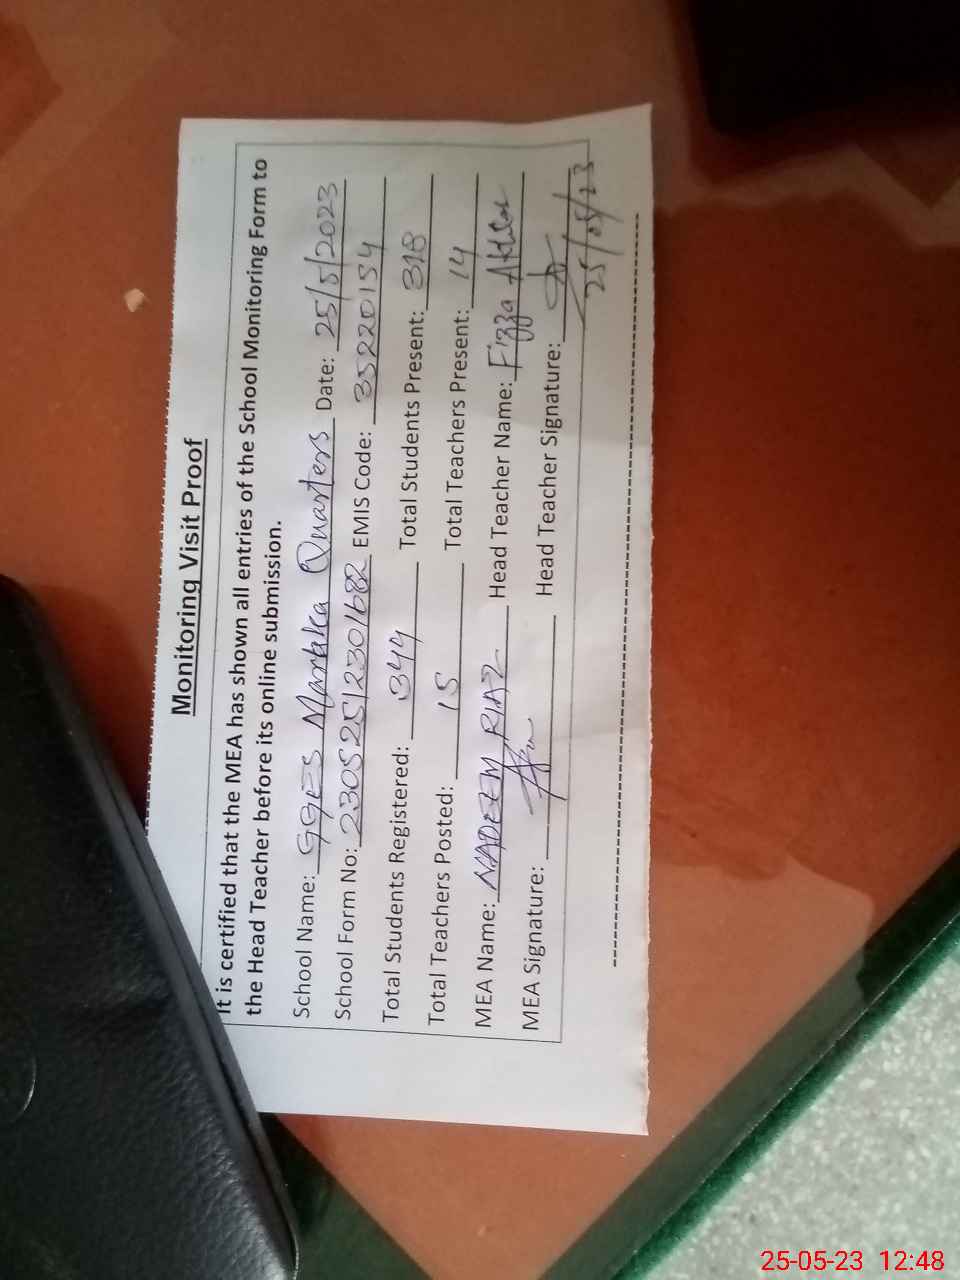 Monitoring Visit Proof
It is certified that the MEA has shown all entries of the School Monitoring Form to
the Head Teacher before its online submission.
School Name: GGES Markka Quarters Date: 25/5/2023
School Form No: 23052512301682 EMIS Code: 35220154
Total Students Registered: 344 Total Students Present: 318
Total Teachers Posted: 15 Total Teachers Present: 14
MEA Name: NADEEM RIAZ Head Teacher Name: Fizza Akhtar
MEA Signature: Head Teacher Signature:
25/05/23
25-05-23 12:48